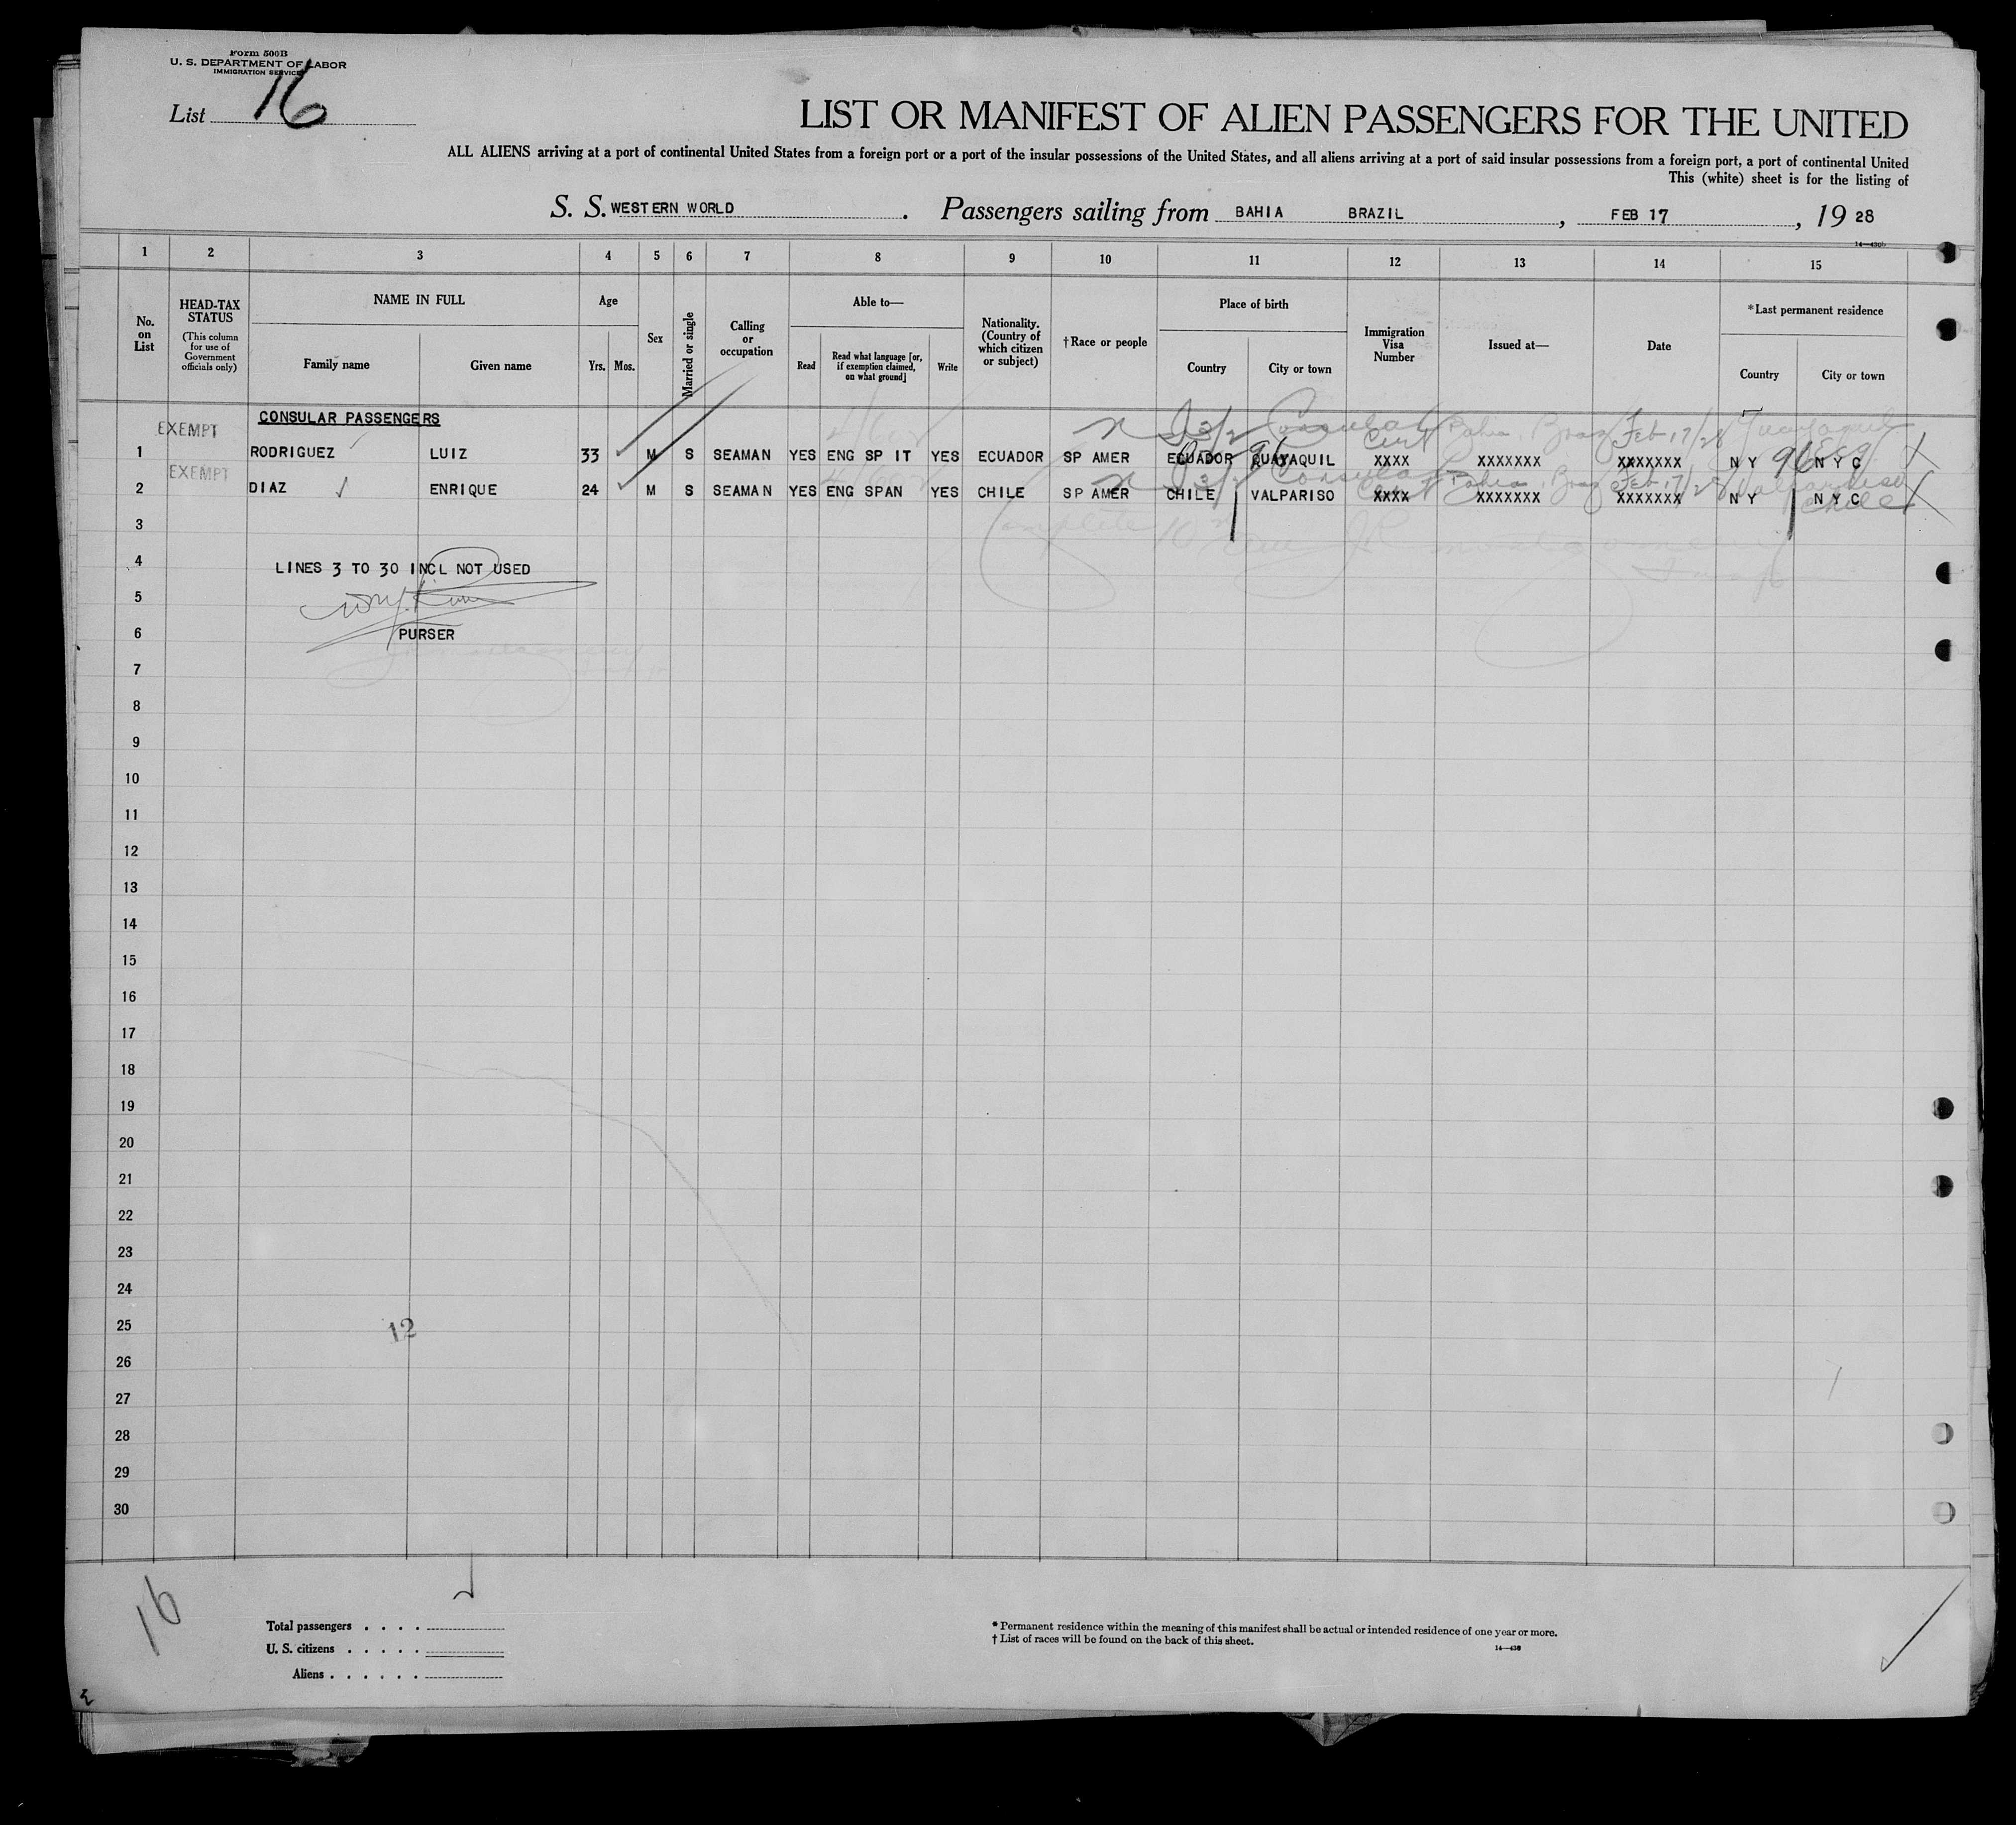 Form 500B
U. S. DEPARTMENT OF LABOR
IMMIGRATION SERVICE
List 16
LIST OR MANIFEST OF ALIEN PASSENGERS FOR THE UNITED
ALL ALIENS arriving at a port of continental United States from a foreign port or a port of the insular possessions of the United States, and all aliens arriving at a port of said insular possessions from a foreign port, a port of continental United
This (white) sheet is for the listing of
S. S. WESTERN WORLD . Passengers sailing from BAHIA BRAZIL , FEB 17 , 19 28
1 2 3 4 5 6 7 8 9 10 11 12 13 14 15
No. on List
HEAD-TAX STATUS
(This column for use of Government officials only)
NAME IN FULL
Family name Given name
Age
Yrs. Mos.
Sex
Married or single
Calling or occupation
Able to—
Read
Read what language [or, if exemption claimed, on what ground]
Write
Nationality. (Country of which citizen or subject)
†Race or people
Place of birth
Country City or town
Immigration Visa Number
Issued at—
Date
*Last permanent residence
Country City or town
CONSULAR PASSENGERS
EXEMPT
Consular Cert Bahia, Braz Feb 17/28 Guayaquil
1 RODRIGUEZ LUIZ 33 M S SEAMAN YES ENG SP IT YES ECUADOR SP AMER ECUADOR QUAYAQUIL XXXX XXXXXXX XXXXXXX N Y N Y C
EXEMPT
Consular Cert Bahia, Braz Feb 17/28 Valparaiso Chile
2 DIAZ ENRIQUE 24 M S SEAMAN YES ENG SPAN YES CHILE SP AMER CHILE VALPARISO XXXX XXXXXXX XXXXXXX N Y N Y C
3
4 LINES 3 TO 30 INCL NOT USED
5
6 PURSER
7
8
9
10
11
12
13
14
15
16
17
18
19
20
21
22
23
24
25 12
26
27
28
29
30
16
Total passengers . . . .
U. S. citizens . . . . .
Aliens . . . . . .
* Permanent residence within the meaning of this manifest shall be actual or intended residence of one year or more.
† List of races will be found on the back of this sheet.
14—430